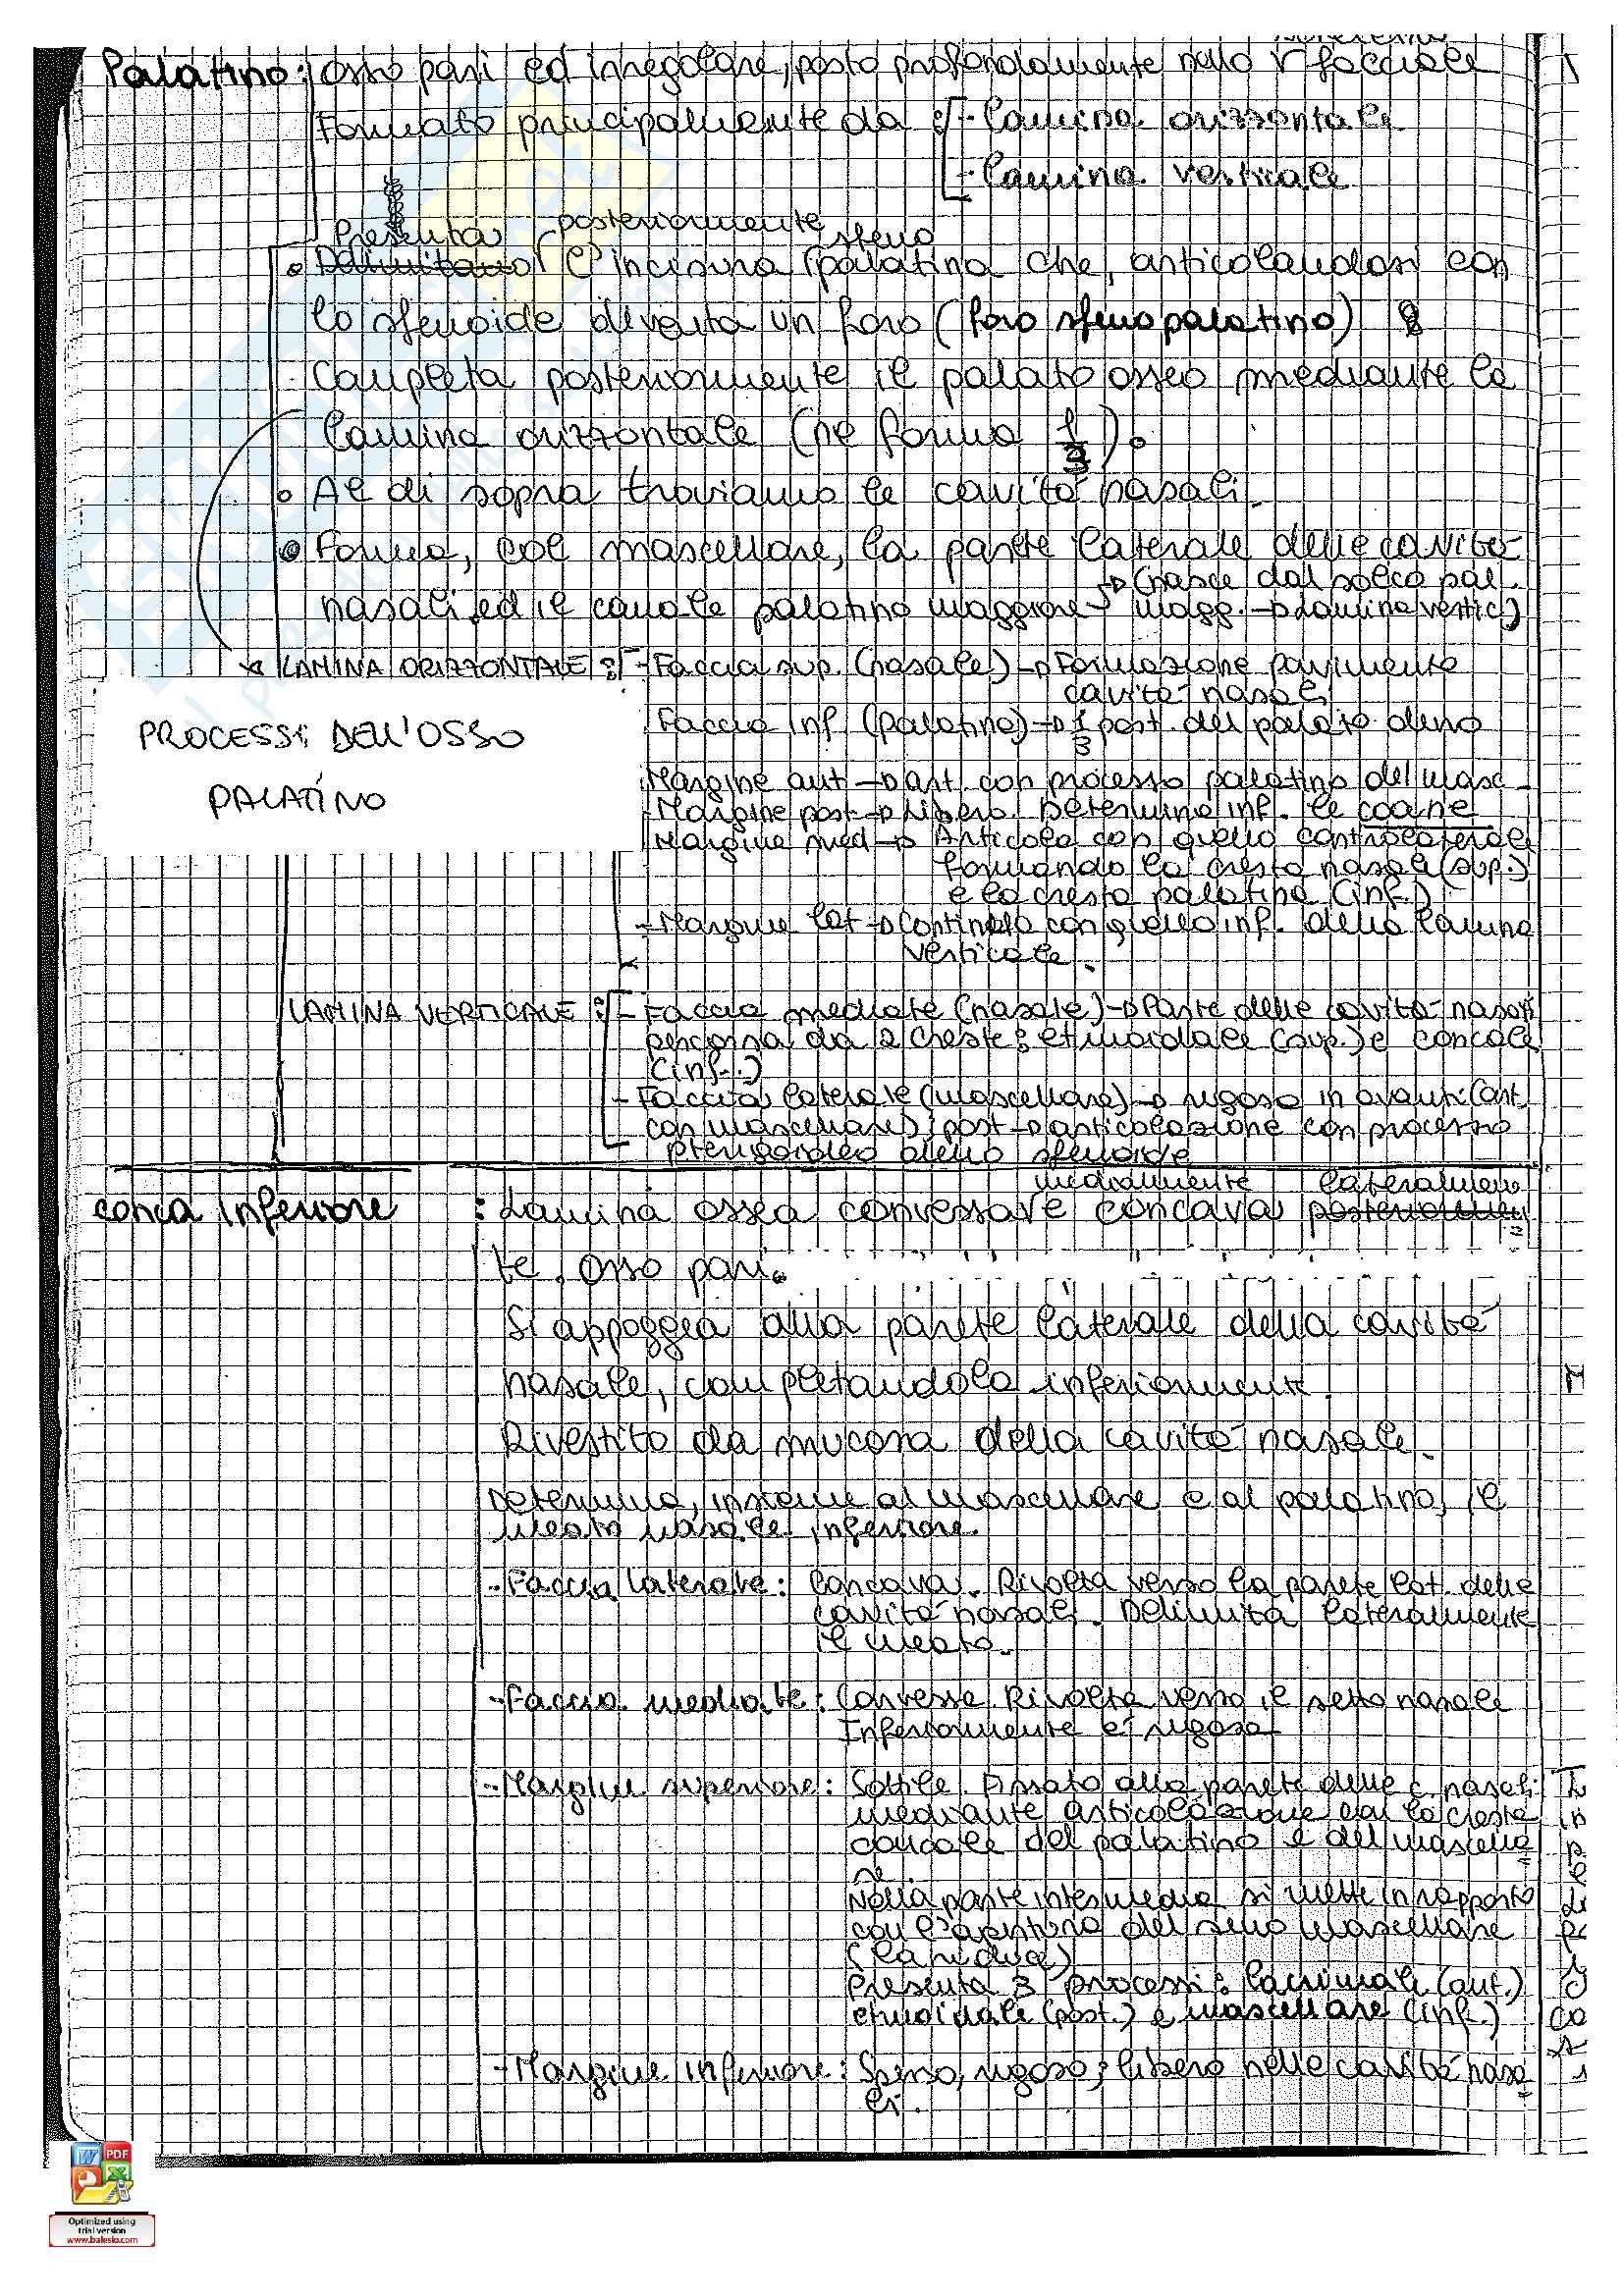 Palatino: osso pari ed irregolare, posto profondamente nello scheletro facciale
Formato principalmente da: - Lamina orizzontale
- Lamina verticale
Presenta posteriormente
l'incisura sfenopalatina che, articolandosi con
lo sfenoide diventa un foro (foro sfenopalatino)
Completa posteriormente il palato osseo mediante la
lamina orizzontale (ne forma 1/3).
Al di sopra troviamo le cavità nasali.
Forma, col mascellare, la parete laterale delle cavità
nasali ed il canale palatino maggiore → (nasce dal solco pal.
magg. → lamina vertic.)
LAMINA ORIZZONTALE: - Faccia sup. (nasale) → Formazione pavimento
cavità nasali
PROCESSI DELL'OSSO
PALATINO
Faccia inf (palatina) → 1/3 post. del palato duro
Margine ant → art. con processo palatino del masc.
- Margine post → Libero. Determina inf. le coane
Margine med → Articola con quello controlaterale
formando la cresta nasale (sup.)
e la cresta palatina (inf.)
- Margine lat → Continua con quello inf. della lamina
verticale.
LAMINA VERTICALE: - Faccia mediale (nasale) → Parte delle cavità nasali
percorsa da 2 creste: etmoidale (sup.) e concale
(inf.)
- Faccia laterale (mascellare) → rugosa in avanti (art.
con mascellare); post → articolazione con processo
pterigoideo dello sfenoide
conca inferiore: Lamina ossea convessa mediamente e concava lateralmen
te. Osso pari.
Si appoggia alla parete laterale della cavità
nasale, completandola inferiormente.
Rivestito da mucosa della cavità nasale.
Determina, insieme al mascellare e al palatino, il
meato nasale inferiore.
- Faccia laterale: Concava. Rivolta verso la parete lat. delle
cavità nasali. Delimita lateralmente
il meato.
- Faccia mediale: Convessa. Rivolta verso il setto nasale
Inferiormente è rugosa
- Margine superiore: Sottile. Fissato alla parete delle c. nasali
mediante articolazione con la cresta
concale del palatino e del mascella
re.
Nella parte intermedia si mette in rapporto
con l'apertura del seno mascellare
Presenta 3 processi: lacrimale (ant.)
etmoidale (post.) e mascellare (inf.)
- Margine inferiore: Spesso, rugoso; libero nelle cavità nasa
li.
Optimized using
trial version
www.balesio.com